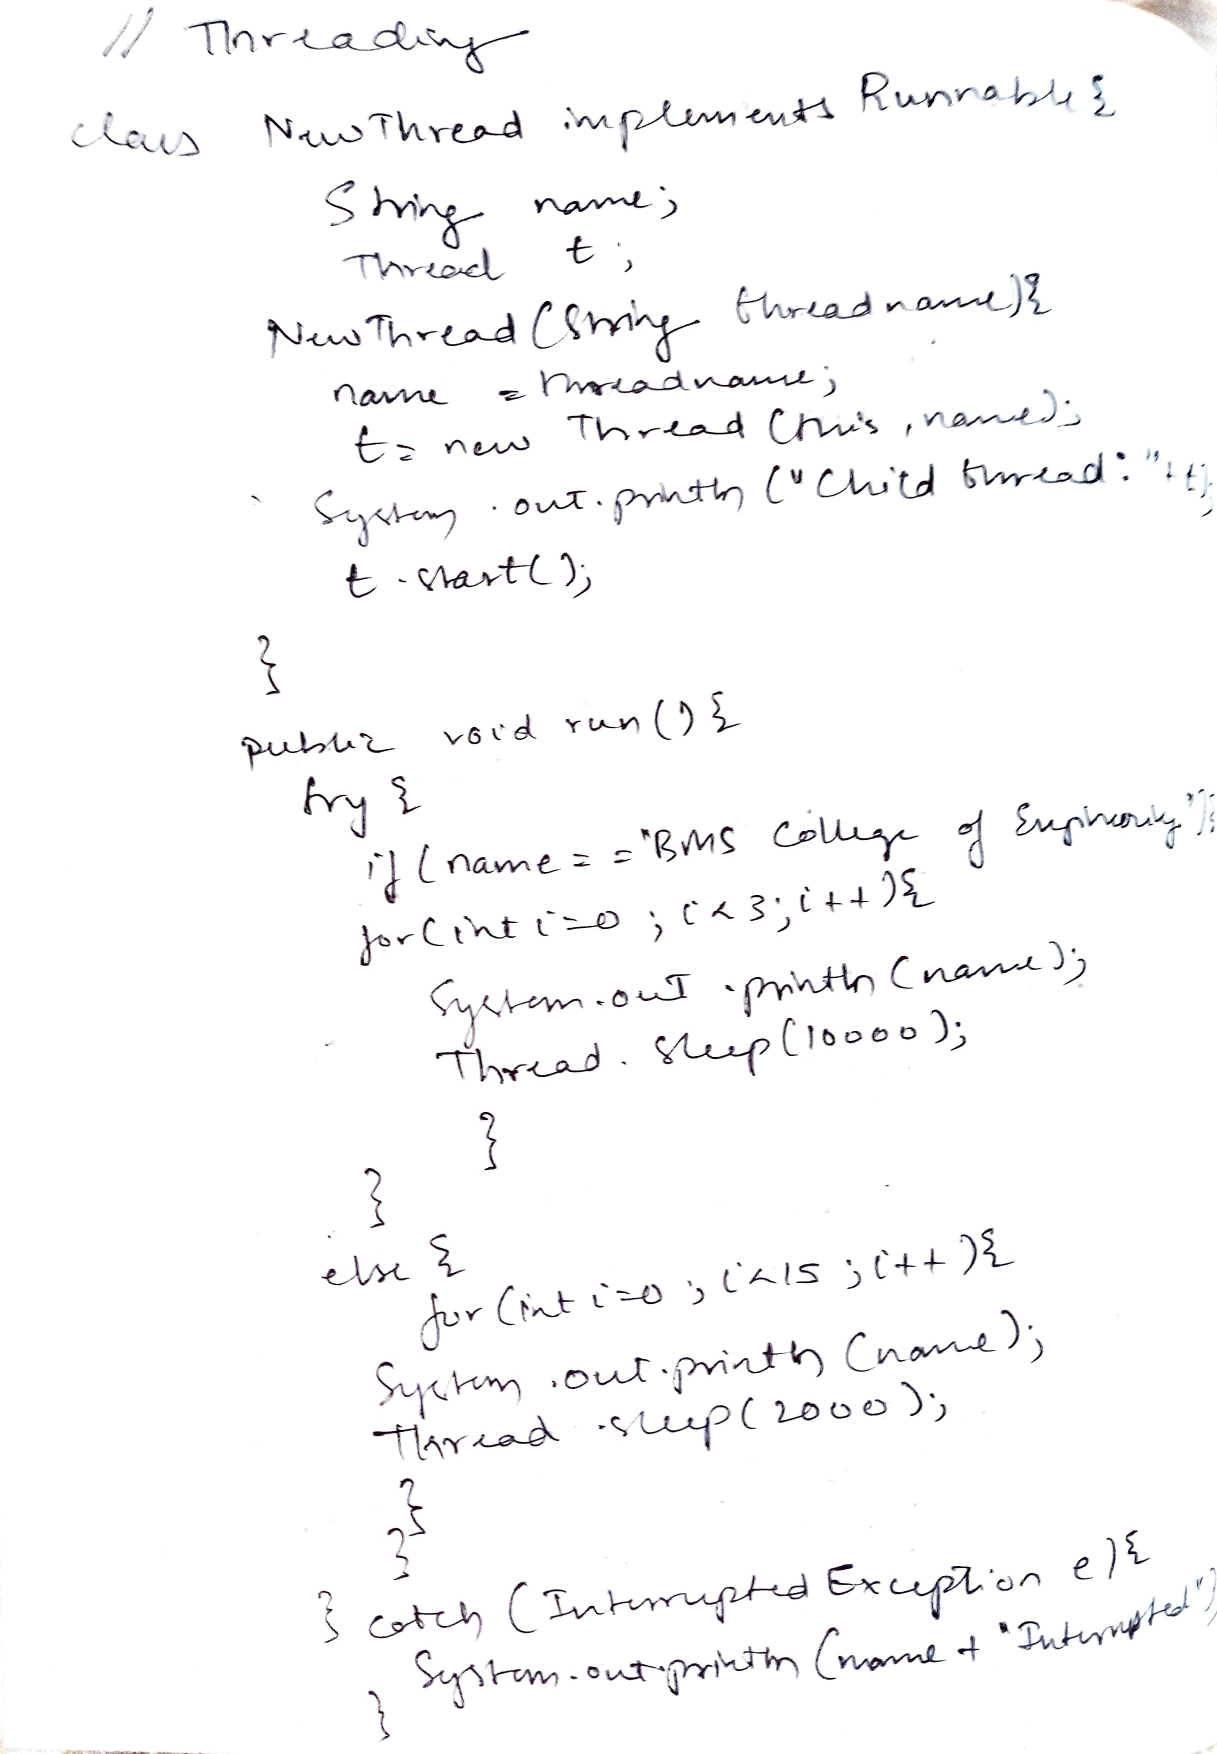 // Threading
class NewThread implements Runnable {
String name;
Thread t;
NewThread (String threadname){
name = threadname;
t = new Thread (this, name);
System.out.println ("Child thread: "+t);
t.start();
}
public void run() {
try {
if (name == "BMS College of Engineering"){
for(int i=0; i<3; i++){
System.out.println(name);
Thread.sleep(10000);
}
}
else {
for(int i=0; i<15; i++){
System.out.println(name);
Thread.sleep(2000);
}
}
} catch (Interrupted Exception e){
System.out.println(name + "Interrupted")
}